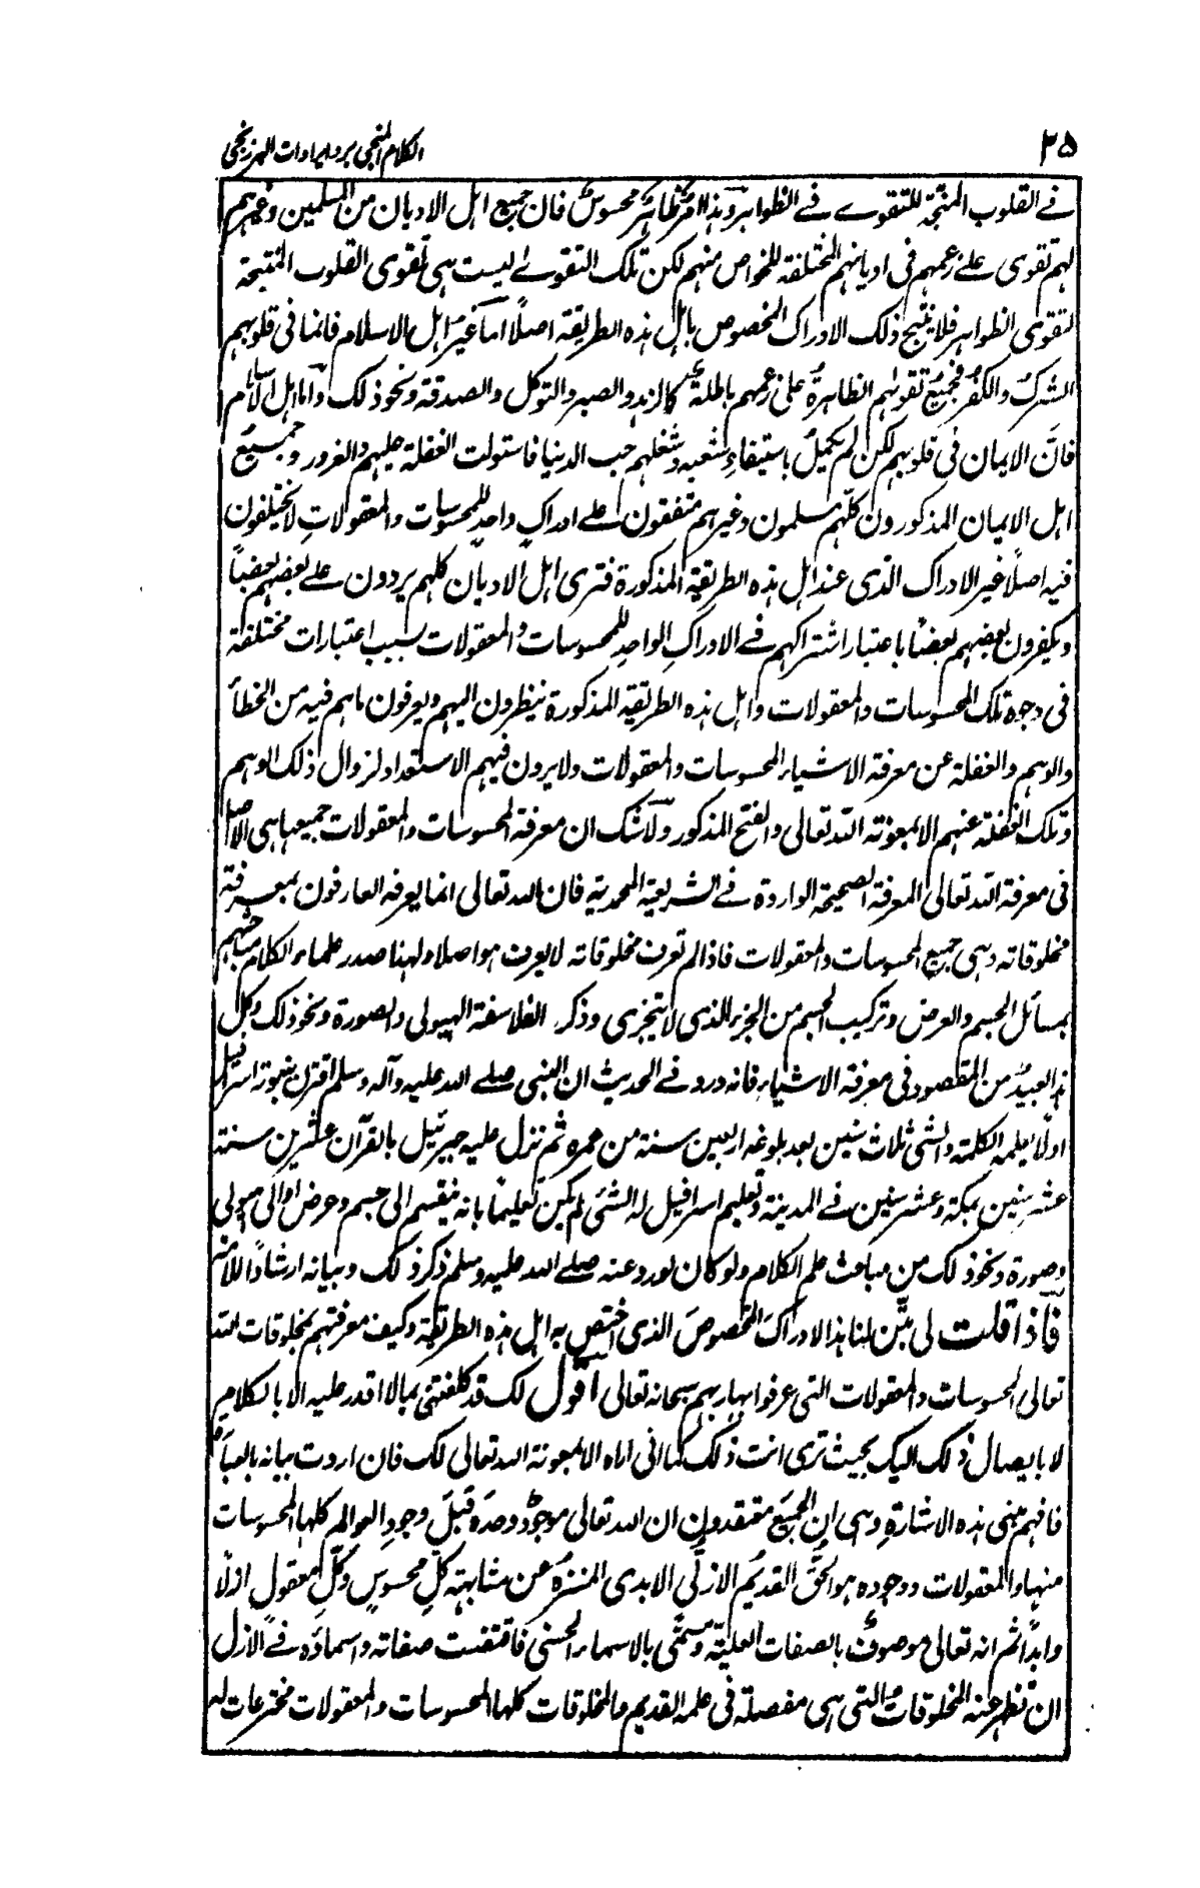 ٢٥
الكلام المنجی برد ایرادات البرزنجی
فے القلوب المنتجة للتقوے فے الظواہر وہذا امر ظاہر محسوس فان جمیع اہل الادیان من المسلمین وغیرہم
لہم تقوی علے زعمہم فی ادیانہم المختلفة للخواص منہم لكن تلك التقوے لیست ہی تقوی القلوب المنتجة
لتقوی الظواہر فلا ینتج ذلك الادراك المخصوص باہل ہذہ الطریقة اصلًا اما غیر اہل الاسلام فانما فی قلوبہم
الشرك والكفر فجمیع تقواہم الظاہرة علی زعمہم باطلة كالزہد والصبر والتوكل والصدقة ونحو ذلك واما اہل الاسلام
فانّ الایمان فی قلوبہم لكن لم یكمل باستیفاءِ شعبہ وشغلہم حب الدنیا فاستولت الغفلة علیہم والغرور وجمیع
اہل الایمان المذكورون كلہم مسلمون وغیرہم متفقون علے ادراكٍ واحدٍ للمحسوسات والمعقولاتِ لا یختلفون
فیہ اصلًا غیر الادراك الذی عند اہل ہذہ الطریقة المذكورة فتری اہل الادیان كلہم یردون علے بعضہم بعضًا
ویكفرون بعضہم بعضًا باعتبار اشتراكہم فے الادراكِ الواحدِ للمحسوسات والمعقولات بسبب اعتبارات مختلفة
فی وجوہ تلك المحسوسات والمعقولات واہل ہذہ الطریقة المذكورة ینظرون الیہم ویعرفون ماہم فیہ من الخطأ
والوہم والغفلة عن معرفة الاشیاء المحسوسات والمعقولات ولا یرون فیہم الاستعداد لزوال ذلك الوہم
وتلك الغفلة عنہم الا بمعونة اللہ تعالی والفتح المذكور ولا شك ان معرفة المحسوسات والمعقولات جمیعہا ہی الاصل
فی معرفة اللہ تعالی المعرفة الصحیحة الواردة فے الشریعة المحمدیة فان اللہ تعالی انما یعرفہ العارفون بمعرفة
مخلوقاتہ وہی جمیع المحسوسات والمعقولات فاذا لم تعرف مخلوقاتہ لا یعرف ہو اصلا ولہذا صدر علماء الكلام مباحثہم
بمسائل الجسم والعرض وتركیب الجسم من الجزء الذی لا یتجزی وذكر الفلاسفة الہیولی والصورة ونحو ذلك وكل
ہذا بعیدٌ من المقصود فی معرفة الاشیاء فانہ ورد فے الحدیث ان النبی صلے اللہ علیہ وآلہ وسلم اقترن بنبوتہ اسرافیل
اولًا یعلمہ الكلمة والشئ ثلاث سنین بعد بلوغہ اربعین سنة من عمرہ ثم نزل علیہ جبرئیل بالقرآن عشرین سنة
عشر سنین بمكة وعشر سنین فے المدینة وتعلیم اسرافیل لہ الشئ لم یكن تعلیمًا بانہ ینقسم الی جسم وعرض او الی ہیولی
وصورة ونحو ذلك من مباحث علم الكلام ولو كان لورد عنہ صلے اللہ علیہ وسلم ذكر ذلك وبیانہ ارشادًا للامة
فاذا قلت لی بیّن لنا ہذا الادراكَ المخصوصَ الذی اختص بہ اہل ہذہ الطریقة وكیف معرفتہم بمخلوقات اللہ
تعالی المحسوسات والمعقولات التی عرفوا بہا ربہم سبحانہ تعالی اقول لك قد كلفتنی بما لا اقدر علیہ الا بالكلامِ
لا بایصال ذلك الیك بحیث تری انت ذلك كما انی اراہ الا بمعونة اللہ تعالی لك فان اردت بیانہ بالعبارة
فافہم منی ہذہ الاشارة وہی ان الجمیعَ معتقدون ان اللہ تعالی موجودٌ وحدَہ قبلَ وجودِ العوالم كلہا المحسوسات
منہا والمعقولات ووجودہ ہو الحقُّ القدیمُ الازلیُ الابدی المنزہُ عن مشابہة كلِ محسوسٍ وكلِّ معقولٍ ازلًا
وابدًا ثم انہ تعالی موصوفٌ بالصفات العلیّة ومسمّی بالاسماء الحسنی فاقتضت صفاتہ واسماؤہ فے الازل
ان تظہر عنہ المخلوقات التی ہی مفصلة فی علمہ القدیم والمخلوقات كلہا المحسوسات والمعقولات مخترعات لہ